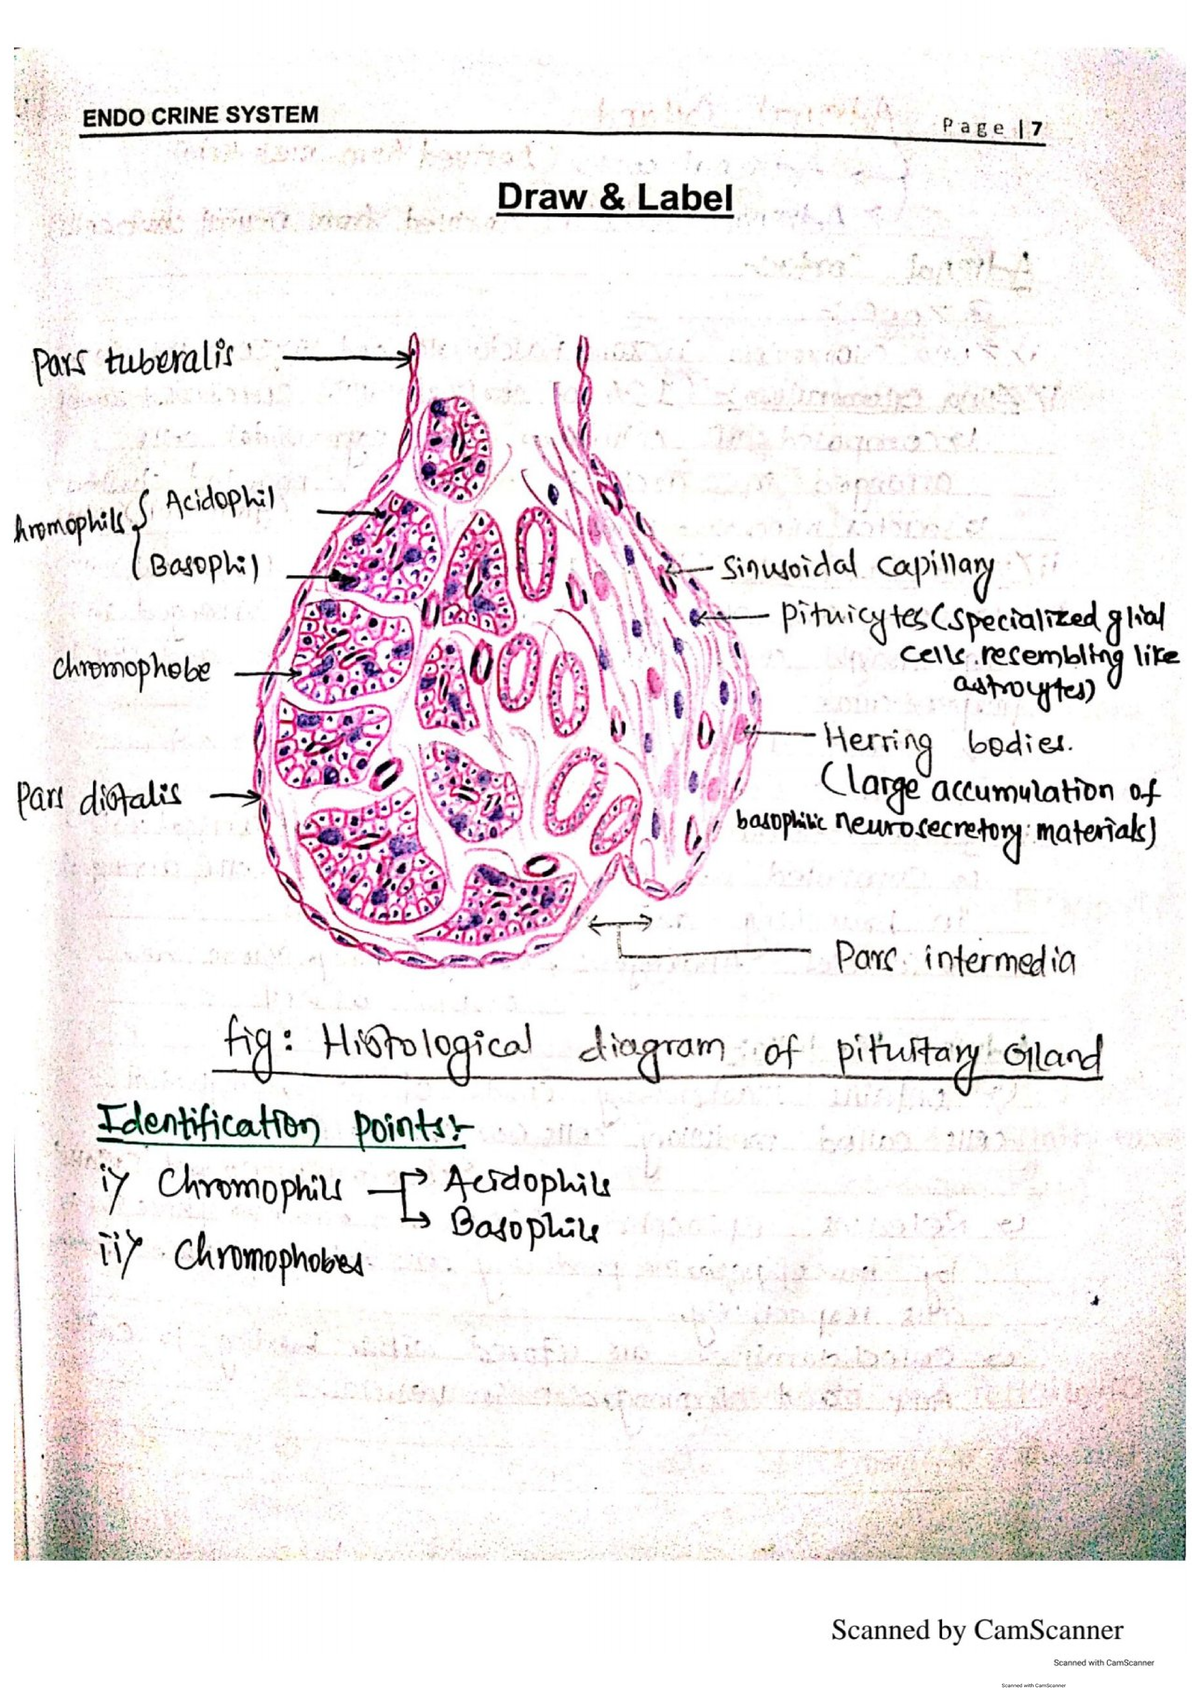 ENDO CRINE SYSTEM
Page | 7
Draw & Label
Pars tuberalis
hromophils { Acidophil
Basophil
chromophobe
Pars distalis
Sinusoidal capillary
Pituicytes (specialized glial
cells resembling like
astrocytes)
Herring bodies.
(large accumulation of
basophilic neurosecretory materials)
Pars intermedia
fig: Histological diagram of pituitary Gland
Identification points:-
i) Chromophils → Acidophils
→ Basophils
ii) Chromophobes
Scanned by CamScanner
Scanned with CamScanner
Scanned with CamScanner